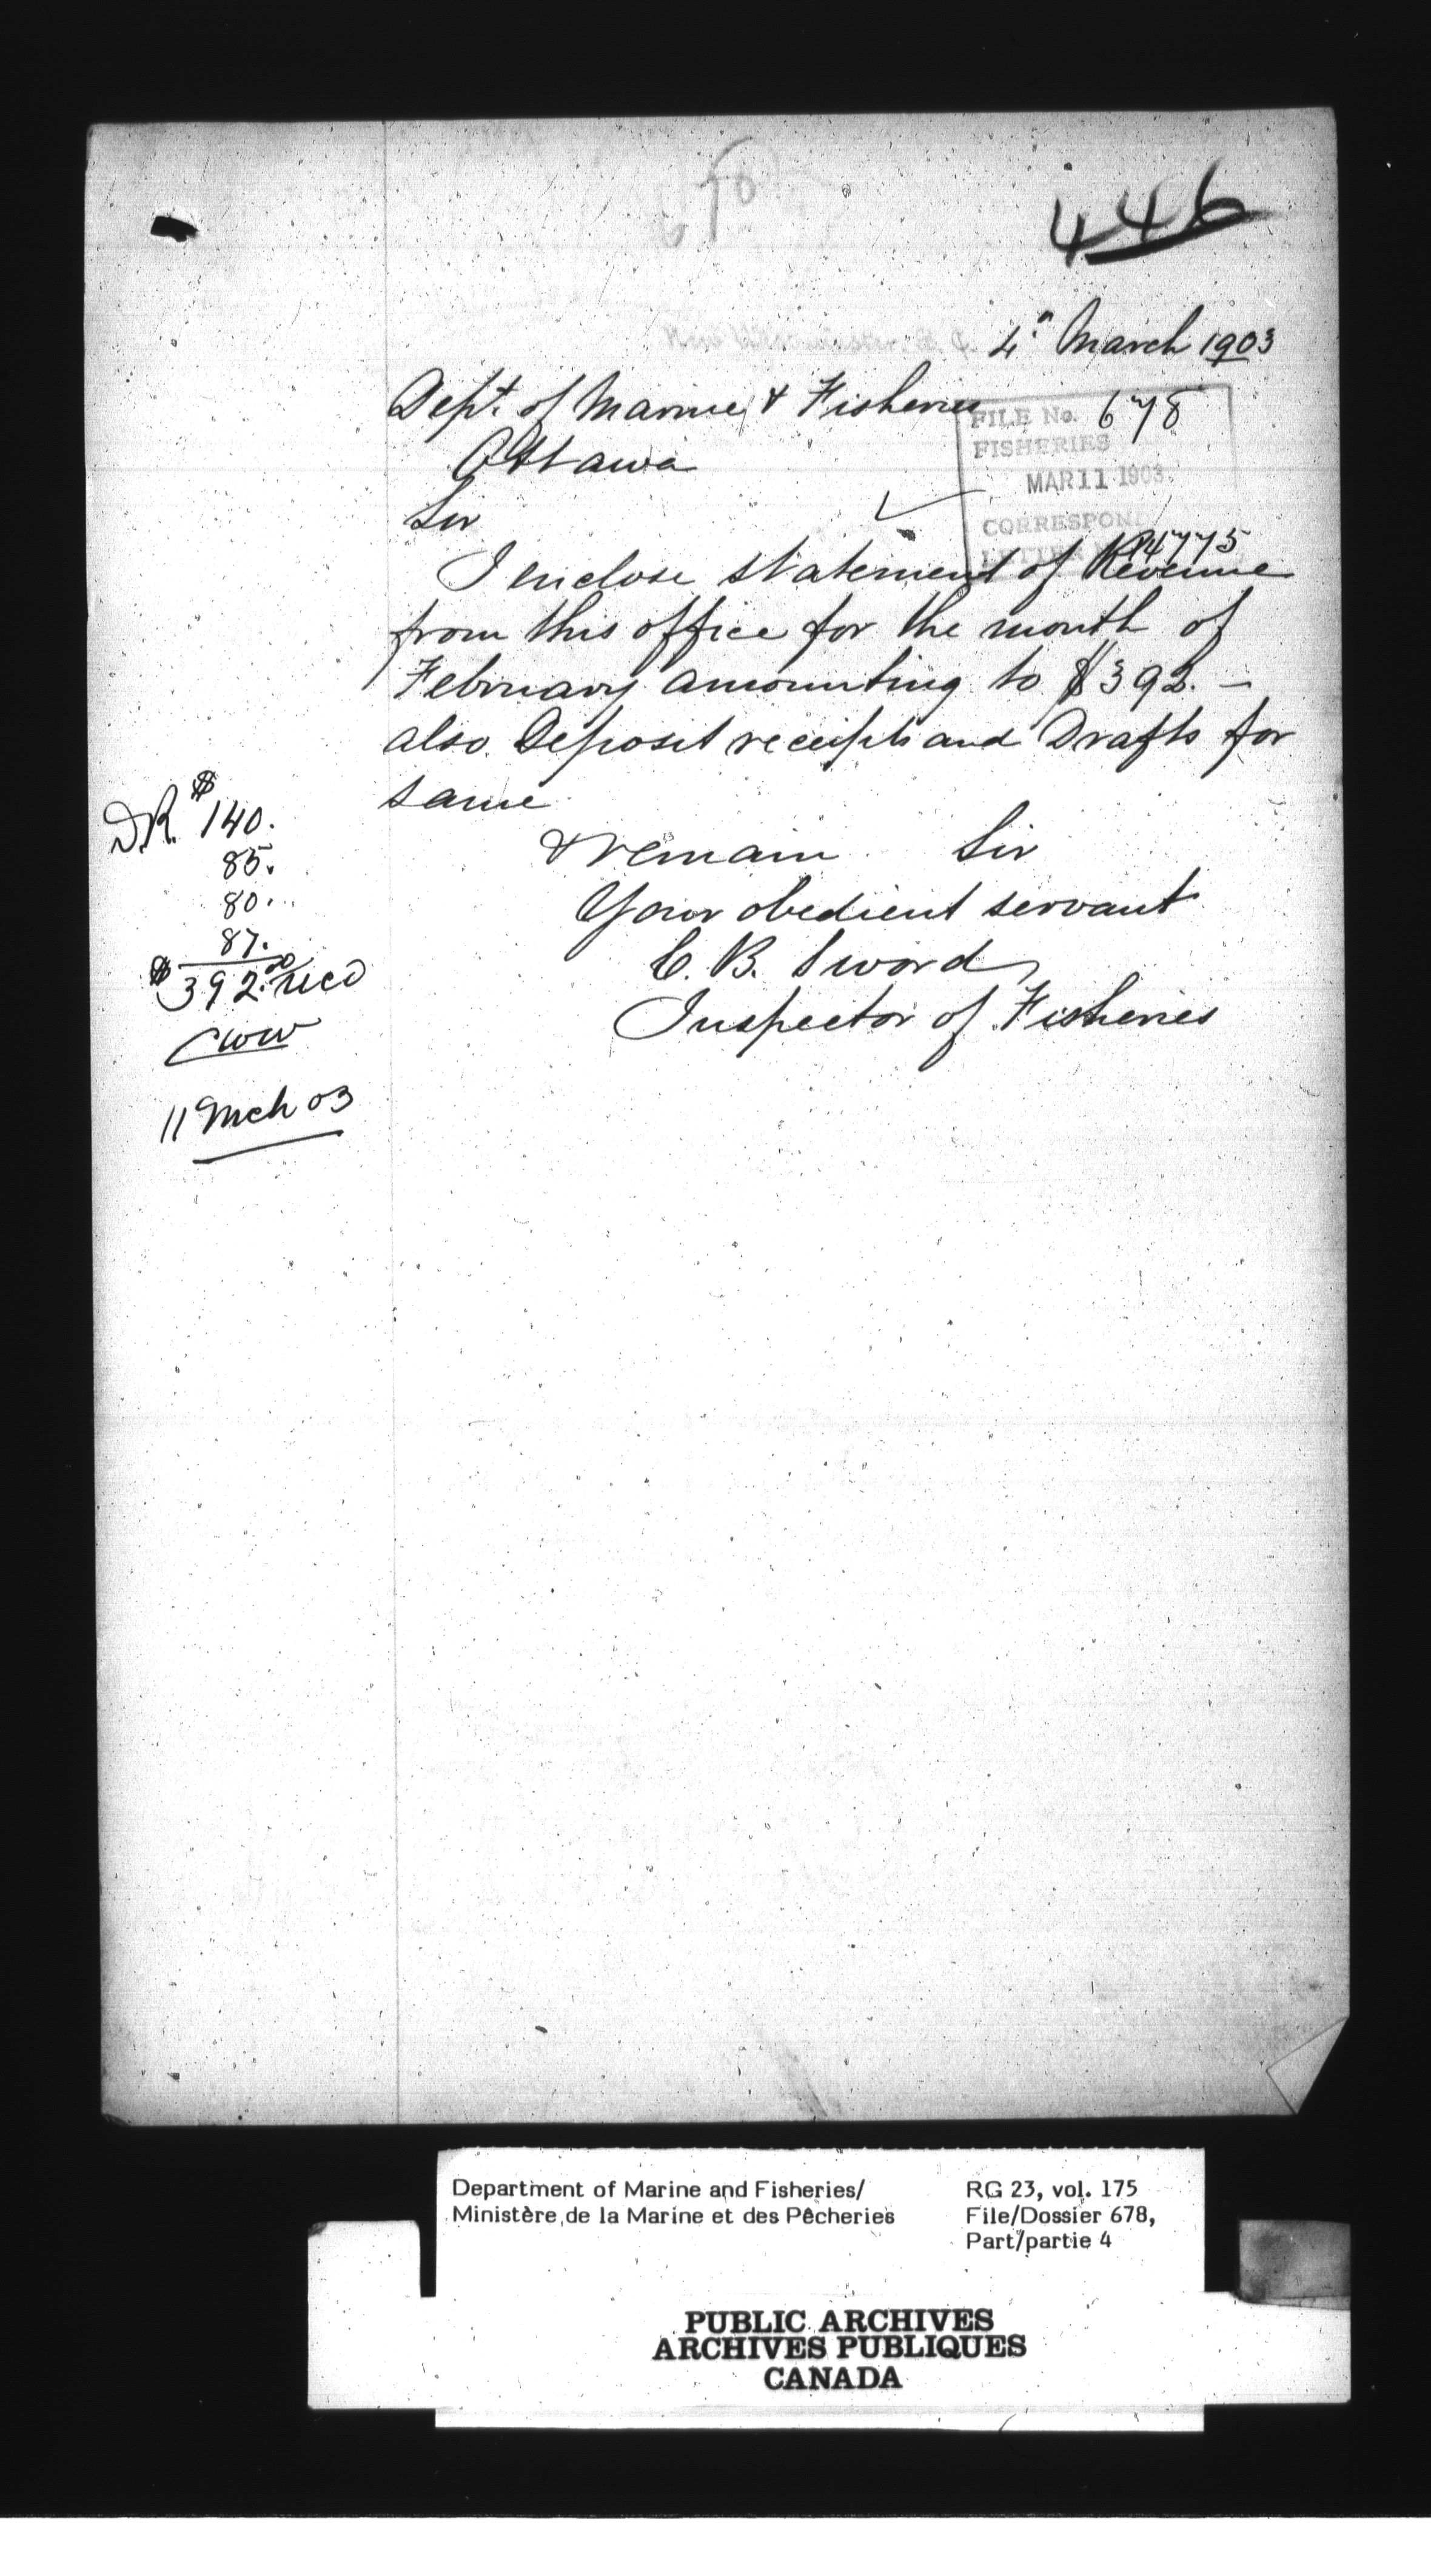 446
New Westminster, B. C. 4" March 1903
Dept. of Marine & Fisheries
Ottawa
FILE No. 678
FISHERIES
MAR 11 1903
CORRESPON
LETTER
P4775
Sir
I enclose statement of Revenue
from this office for the month of
February amounting to $392. —
also Deposit receipts and Drafts for
same
& remain Sir
Your obedient servant
C. B. Sword
Inspector of Fisheries
D.R. $140.
85.
80.
87.
$392.00 recd
CWW
11 Mch 03
Department of Marine and Fisheries/
Ministère de la Marine et des Pêcheries
RG 23, vol. 175
File/Dossier 678,
Part/partie 4
PUBLIC ARCHIVES
ARCHIVES PUBLIQUES
CANADA